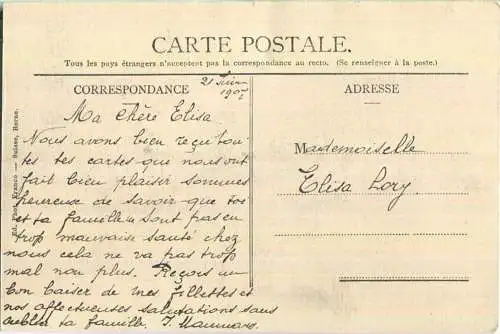 CARTE POSTALE.
Tous les pays étrangers n'acceptent pas la correspondance au recto. (Se renseigner à la poste.)
CORRESPONDANCE
21 Juin
1907
Ma chère Elisa
Nous avons bien reçu tou-
tes tes cartes que nous ont
fait bien plaisir sommes
heureuse de savoir que toi
et ta famille ne sont pas en
trop mauvaise santé chez
nous cela ne va pas trop
mal non plus. Reçois un
bon baiser de mes fillettes et
nos affectueuses salutations sans
oublier ta famille. J.
ADRESSE
Mademoiselle
Elisa Lory
Franco-Suisse, Berne.